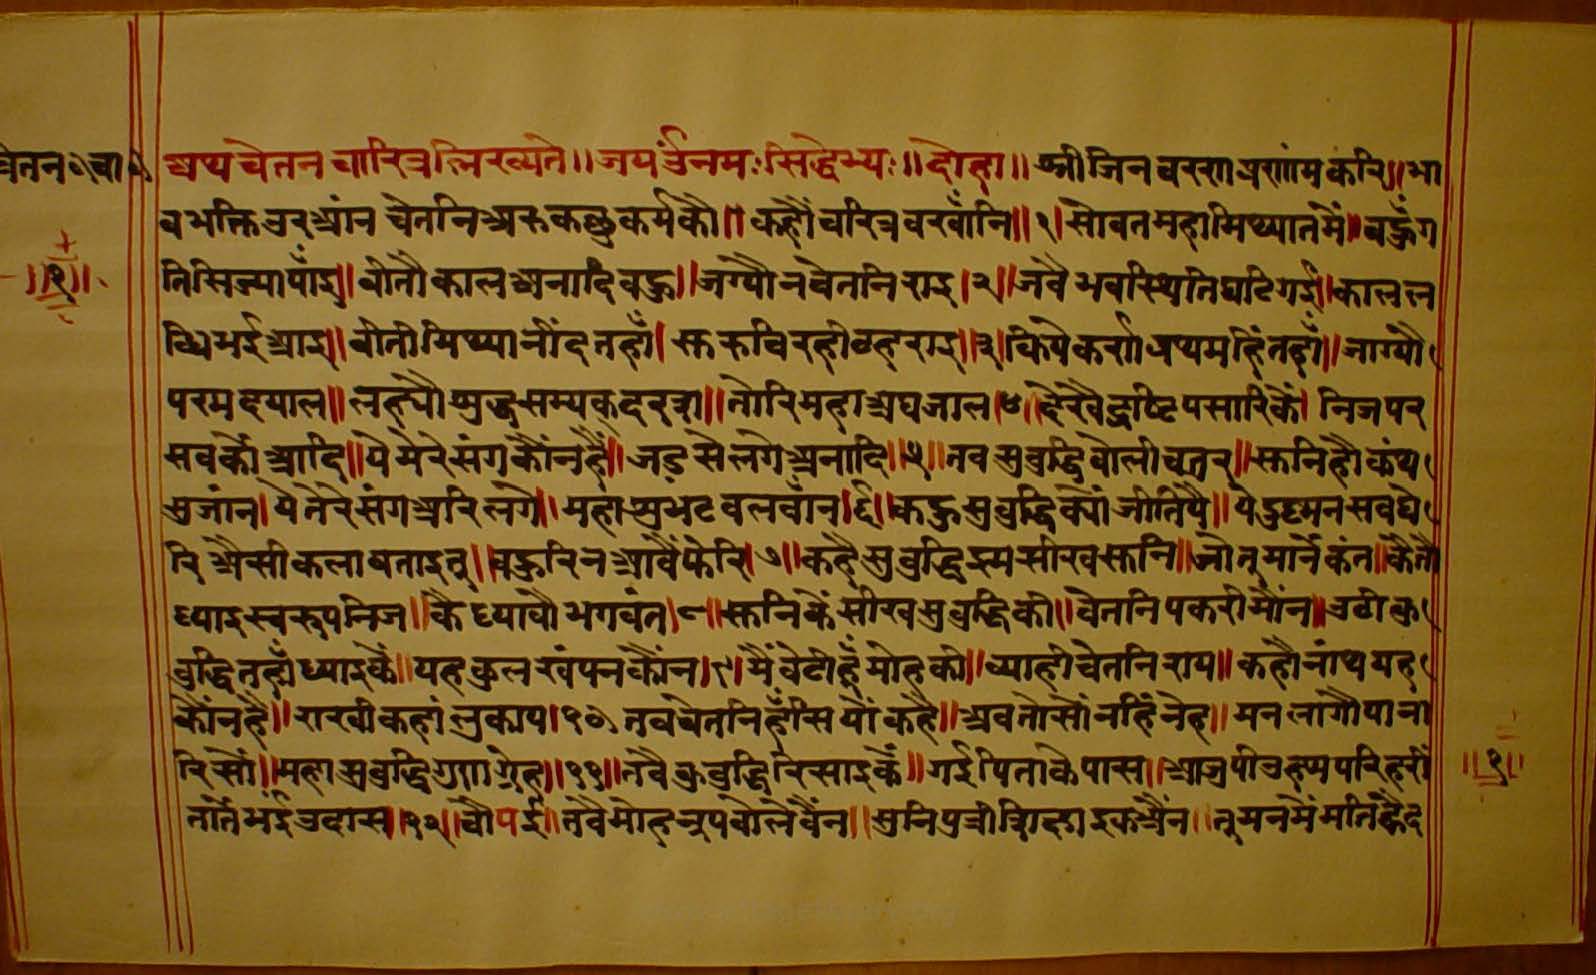 चेतन० चा०
अथ चेतन चारित्र लिख्यते॥ जय ॐ नमः सिद्धेभ्यः॥ दोहा॥ श्री जिन चरण प्रणांम करि॥ भा
व भक्ति उर आंन चेतनि अरु कछु कर्म कौ॥ कहौं चरित्र वरवांनि॥१॥ सोवत महा मिथ्यात मैं॥ चहुँ ग
॥१॥
ति सिज्या पाँइ॥ वीतौ काल अनादि वहु॥ जग्यौ न चेतनि राइ।२॥ जवै भवस्थिति घटि गई॥ काल ल
व्धि भई आइ॥ वीती मिथ्या नींद तहाँ। सुरुचि रही ठहराइ॥३॥ किये कर्ण प्रथम हिं तहाँ॥ जाग्यौ
परम दयाल॥ लह्यौ सुद्ध सम्यक दरश॥ तोरि महा अघ जाल॥४॥ देखै द्रष्टि पसारिकें। निज पर
सव कौं आदि॥ ये मेरे संग कौंन हैं॥ जड़ से लगे अनादि॥५॥ तव सुवुद्धि वोली चतुर॥ सुनि हौ कंथ
सुजांन। ये तेरे संग अरि लगे॥ महा सुभट वलवाँन।६॥ कहु सुवुद्धि क्यों जीतियै॥ ये दुसमन सव घे
रि अैसी कला वताइ तू॥ वहुरि न आवैं फेरि।७॥ कहै सुवुद्धि इम सीख सुनि॥ जो तू मानें कंत॥ कै तौ
ध्याइ स्वरुप निज॥ कै ध्यावौ भगवंत।८॥ सुनि कें सीख सुवुद्धि की॥ चेतनि पकरी मौंन॥ उठी कु
वुद्धि तहाँ ध्याइकें॥ यह कुल खंपन कौंन।९। मैं वेटी हूँ मोह की॥ व्याही चेतनि राय॥ कहौ नांथ यह
कौंन है॥ राखी कहां लुकाय।१०॥ तव चेतनि हँसि यौं कहै॥ अव तोसौं नहिं नेह॥ मन लागौ या ना
रि सों॥ महा सुवुद्धि गुण ग्रेह॥११॥ तवै कुवुद्धि रिसाइकें॥ गई पिता के पास॥ आजु पीउ हम परिहरी
॥१॥
तांतें भई उदास॥१२॥ चौपई॥ तवै मोह नृप वोले वैंन॥ सुनि पुत्री शिक्षा इक अैंन॥ तू मन मैं मति ह्वै द